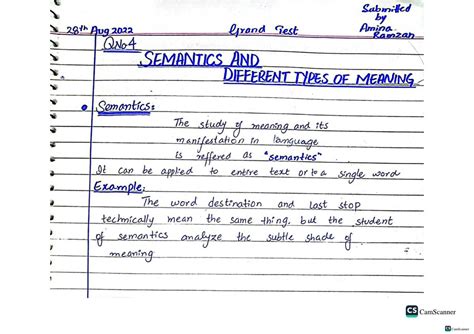 Submitted
by
28th Aug 2022 Grand Test Amina
Ramzan
Q No 4
SEMANTICS AND
DIFFERENT TYPES OF MEANING
Semantics:
The study of meaning and its
manifestation in language
is reffered as "semantics"
It can be applied to entire text or to a single word
Example:
The word destination and last stop
technically mean the same thing, but the student
of semantics analyze the subtle shade of
meaning
CS CamScanner
CS CamScanner